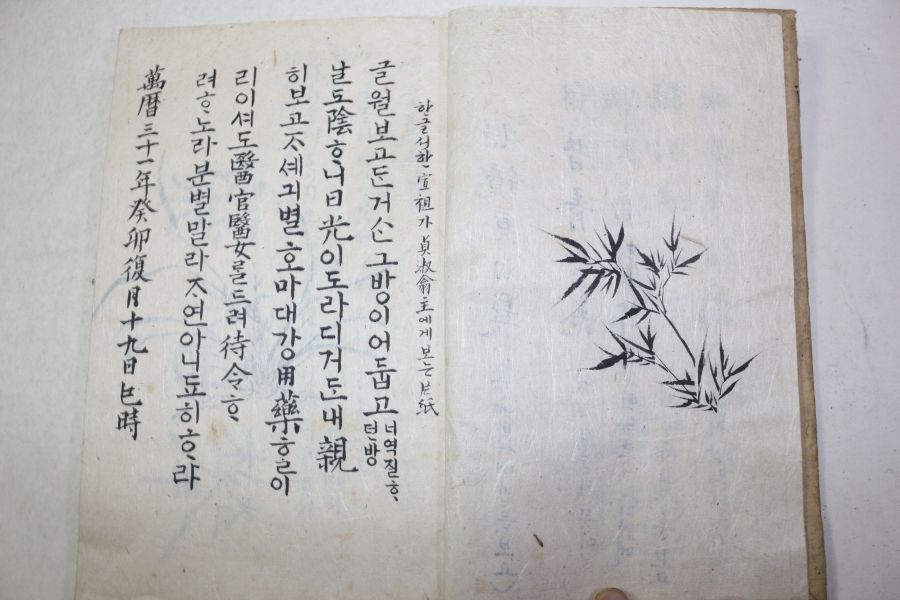 한글서한 宣祖가 貞淑翁主에게 보낸 片紙
글월 보고 둔 거ᄉᆞᆫ 그 방이 어둡고 너 역질ᄒᆞ던 방
날도 陰ᄒᆞ니 日光이 도라디거ᄃᆞᆫ 내 親
히 보고 ᄌᆞ셰 긔별호마 대강 用藥ᄒᆞᆯ 이
리 이셔도 醫官醫女ᄅᆞᆯ 드려 待令ᄒᆞ
려 ᄒᆞ노라 분별 말라 ᄌᆞ연 아니 됴히 ᄒᆞ랴
萬曆三十一年癸卯復月十九日巳時